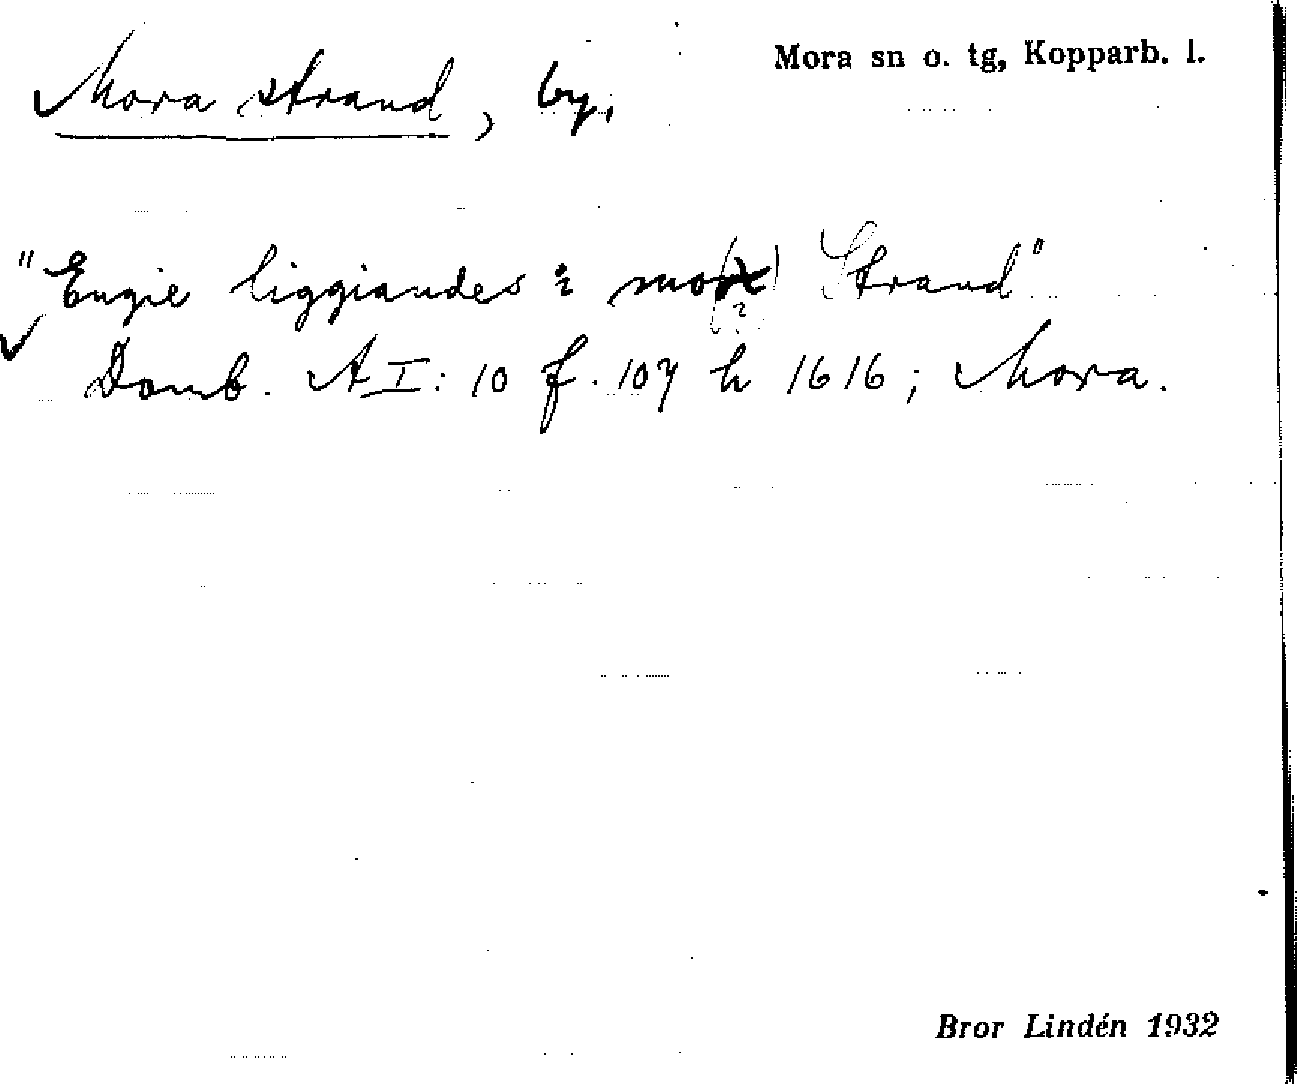 Mora sn o. tg, Kopparb. l.
Mora strand, by.
"Engie liggiandes i Strand"
Domb. A I: 10 f. 107 h 1616; Mora.
Bror Lindén 1932